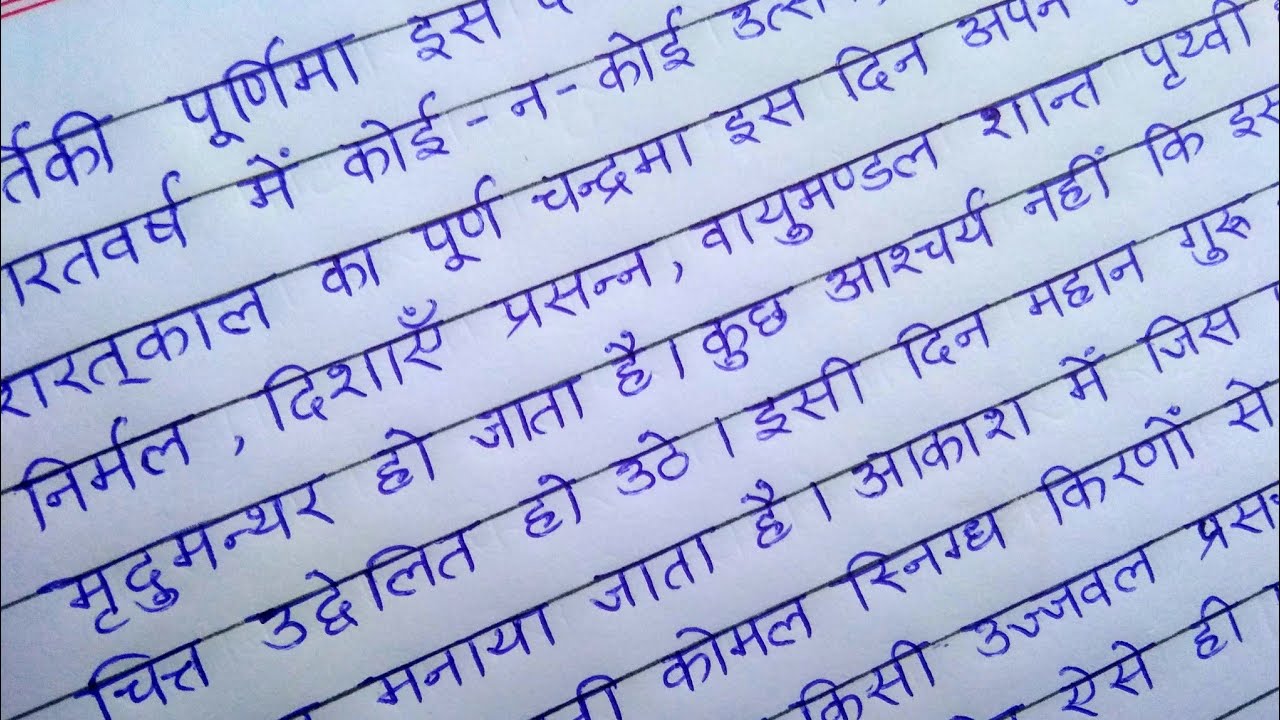 र्तिकी पूर्णिमा इस
रतवर्ष में कोई-न-कोई
शरत्काल का पूर्ण चन्द्रमा इस दिन अपने
निर्मल, दिशाएँ प्रसन्न, वायुमण्डल शान्त पृथ्वी
मृदुमन्थर हो जाता है। कुछ आश्चर्य नहीं कि इस
चित्त उद्वेलित हो उठे। इसी दिन महान गुरू
मनाया जाता है। आकाश में जिस
कोमल स्निग्ध किरणों से
किसी उज्जवल
ऐसे ही